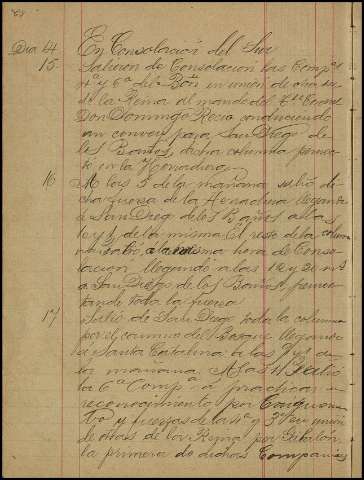 Dia 14 En Consolación del Sur
15 Salieron de Consolación las Compas
4ª y 6ª del Bón en union de otras
de la Reina al mando del Tte Coronel
Don Domingo Recio conduciendo
un convoy para San Diego de
los Baños, dicha columna pernoc
tó en la Herradura
16 A las 5 de la mañana salió di
cha fuerza de la Herradura llegando
a San Diego de los Baños a las
de la misma El resto de la columna
salió a la misma hora de Conso
lacion llegando a las 12 y 20 mts
a San Diego de los Baños pernoc
tando toda la fuerza
17 Salió de San Diego toda la columna
por el camino del Bosque llegando
a Santa Catalina a las 9 y de
la mañana. A las 11 salió
la 6ª Compª a practicar
reconocimiento por
y fuerzas de la 4ª y 3ª en union
de otras de la Reyna por
la primera de dichas Compañias